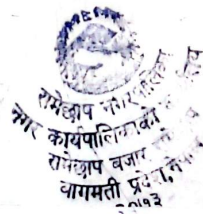 रामेछाप नगरपालिका
नगर कार्यपालिकाको
रामेछाप बजार
बागमती प्रदेश, नेपाल
२०७३